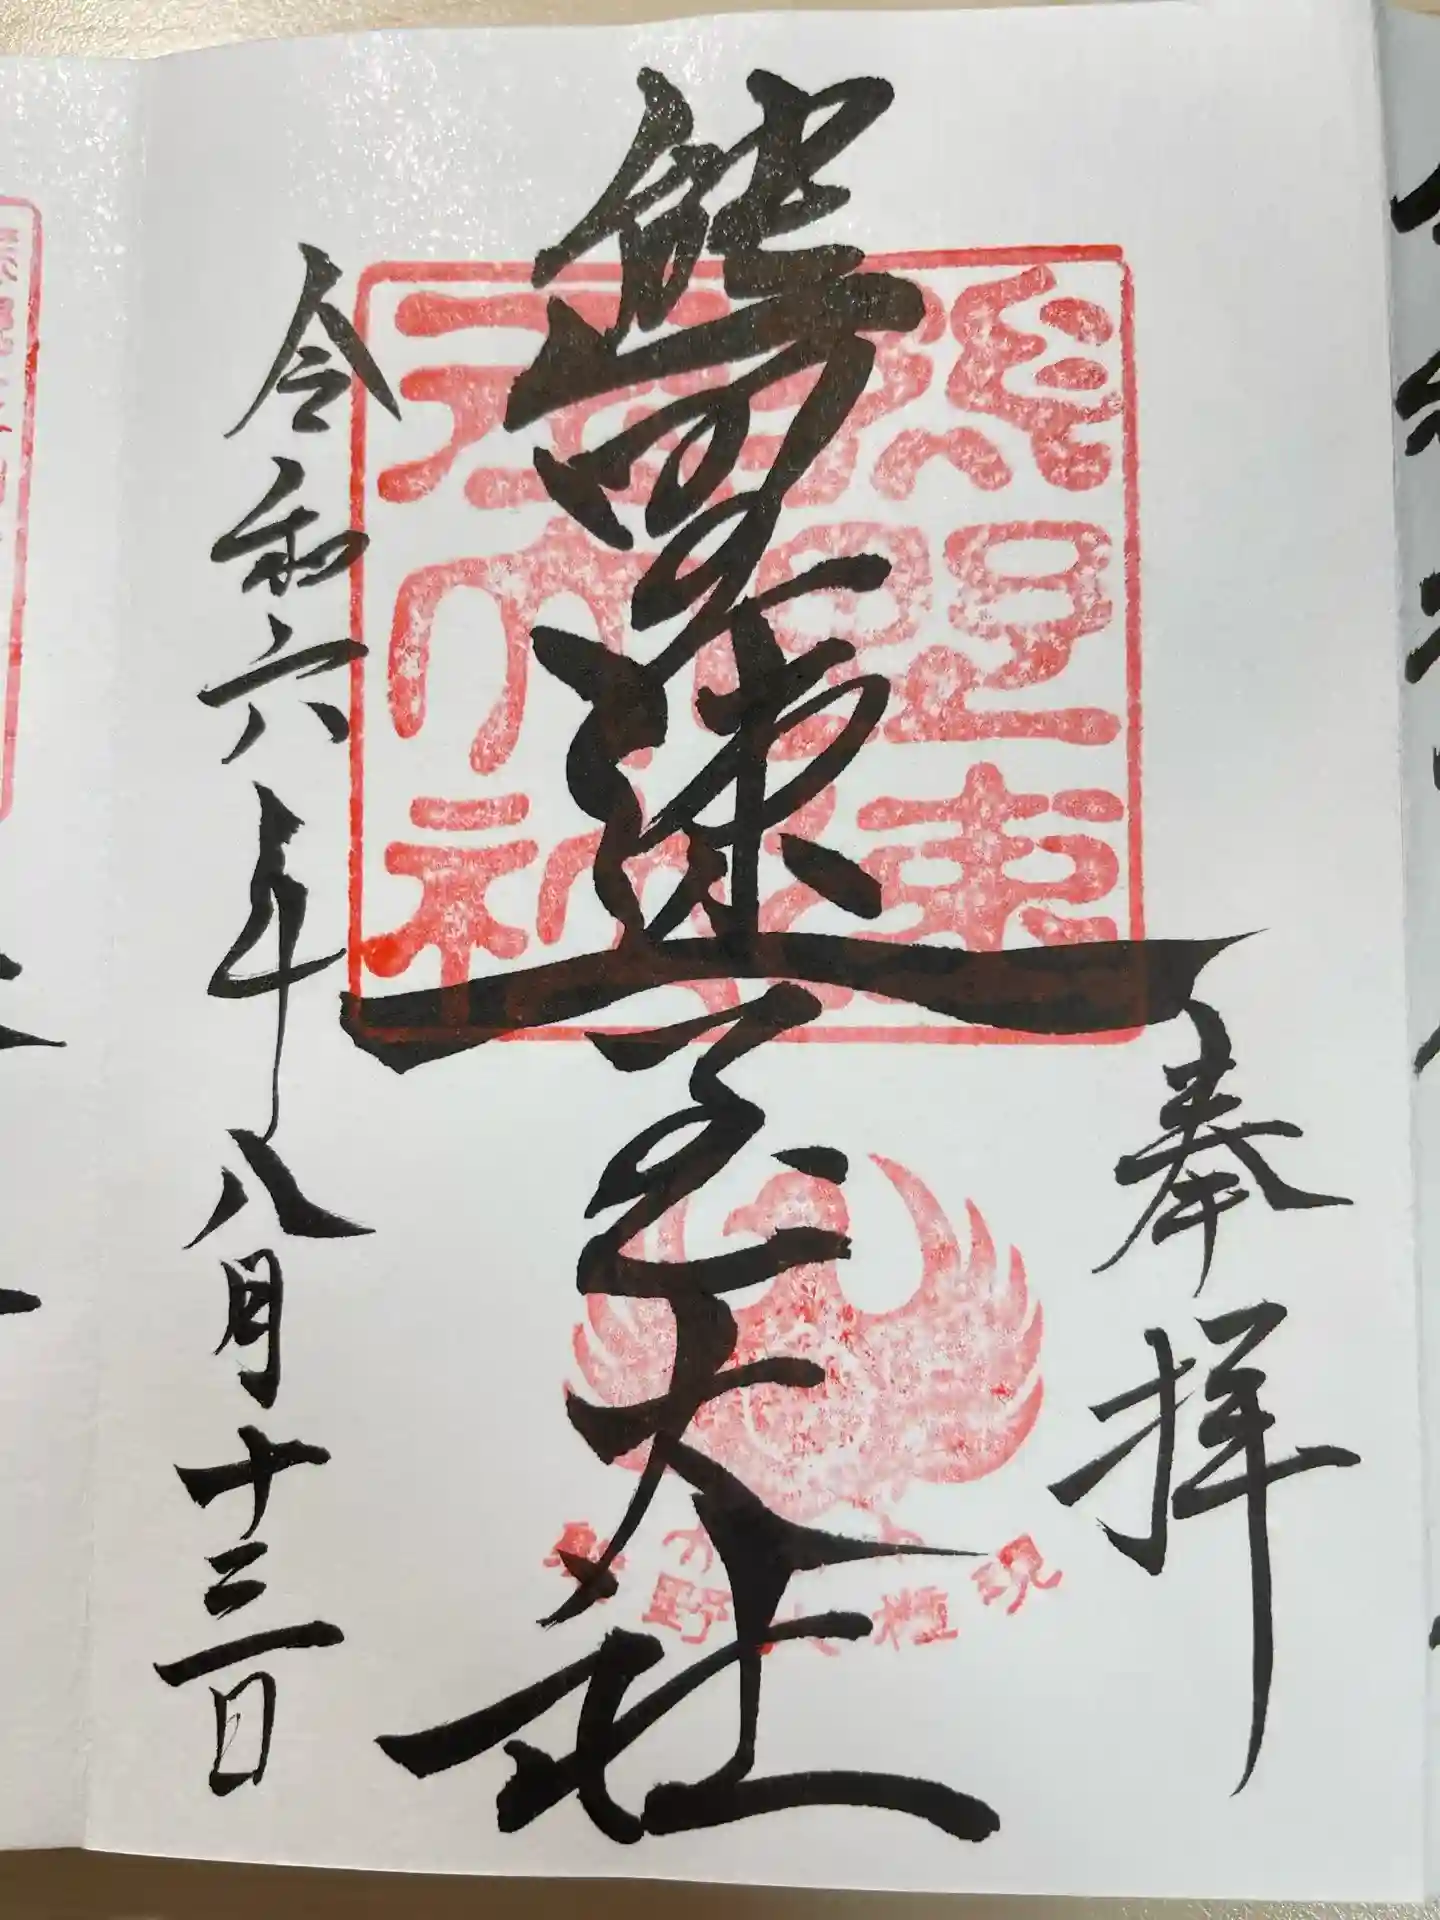 奉拝
熊野速玉大社
令和六年八月十三日
熊野速
玉大社
熊野大権現